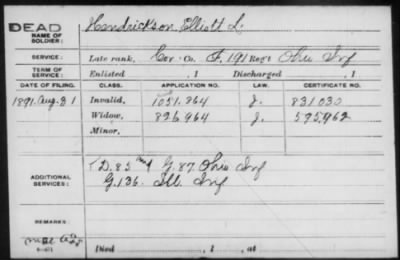 DEAD Hendrickson, Elliott L.
NAME OF SOLDIER:
SERVICE: Late rank, Cor Co. F, 191 Reg't Ohio Inf
TERM OF SERVICE: Enlisted , 1 Discharged , 1
DATE OF FILING. CLASS. APPLICATION NO. LAW. CERTIFICATE NO.
1891, Aug. 31 Invalid, 1051.264 J. 831030
Widow, 826964 J. 595,962
Minor,
ADDITIONAL SERVICES: D. 85 G. 87. Ohio Inf
G. 136. Ill. Inf
REMARKS:
Died , 1 , at